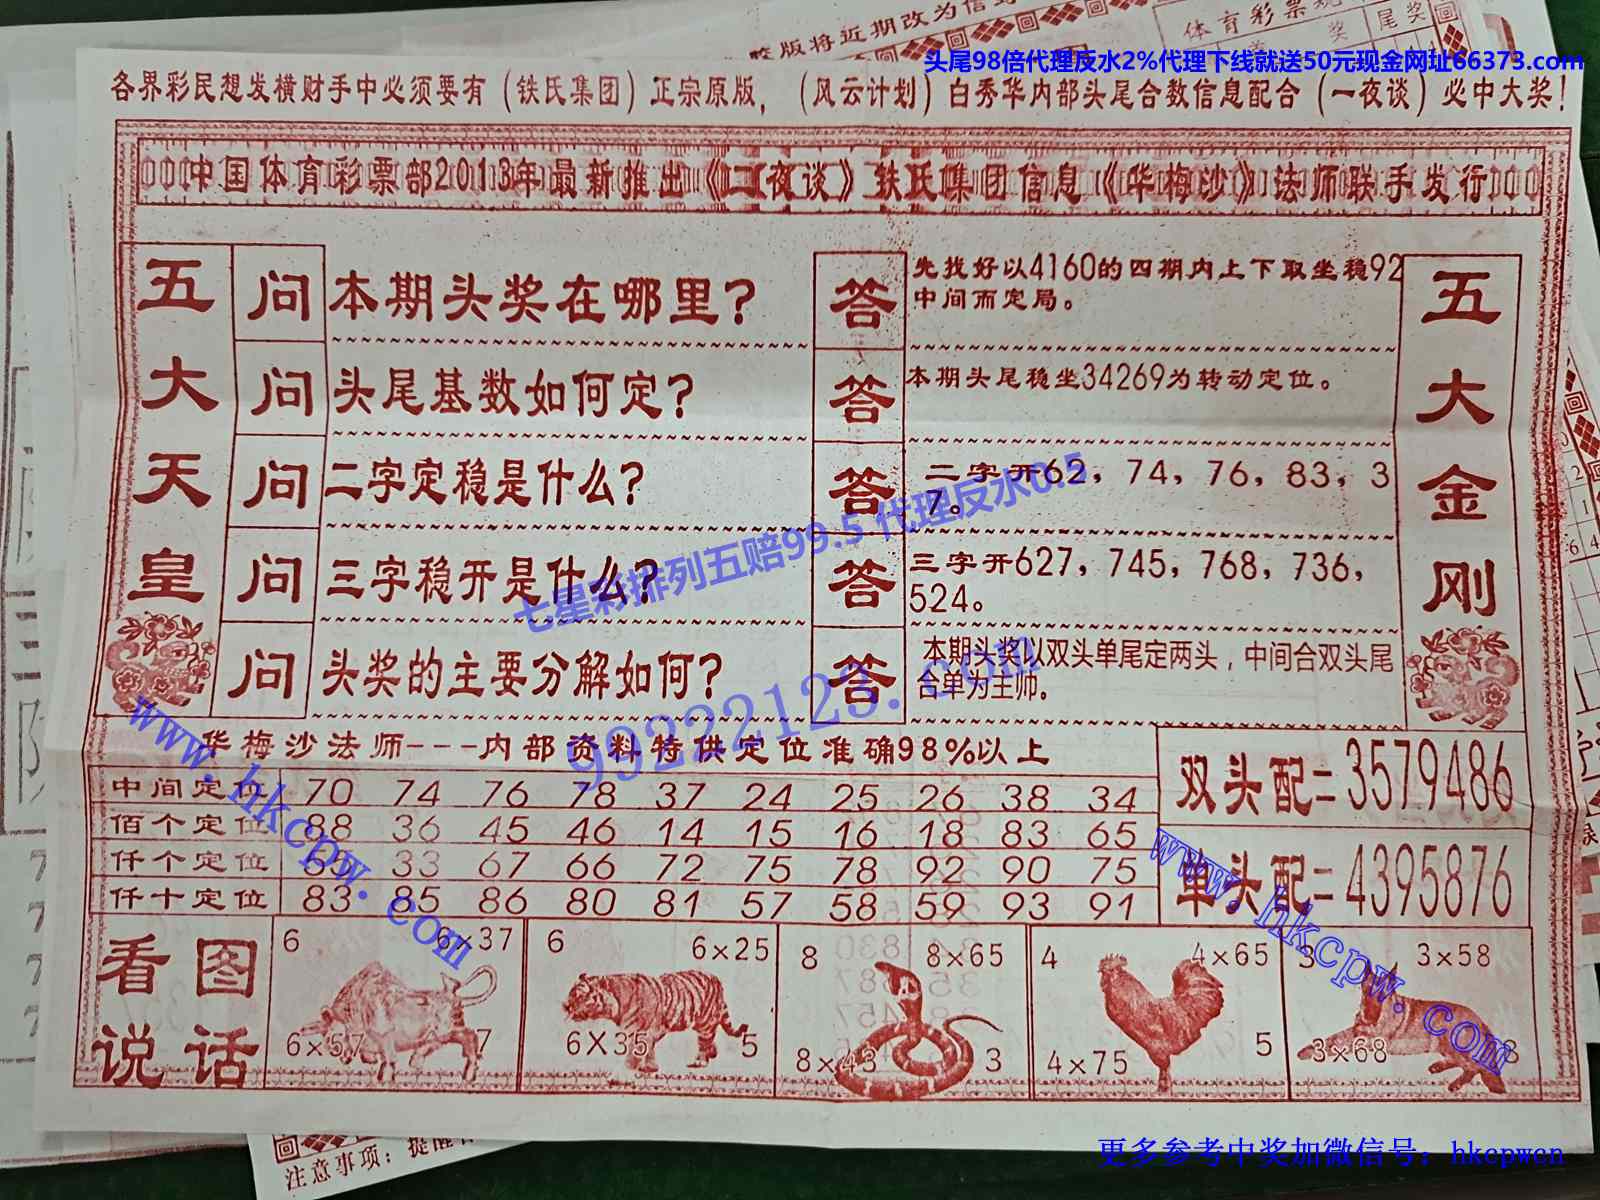 胶版将近期改为信封
体育彩票规
尾奖
头尾98倍代理反水2%代理下线就送50元现金网址66373.com
各界彩民想发横财手中必须要有（铁氏集团）正宗原版，（风云计划）白秀华内部头尾合数信息配合（一夜谈）必中大奖！
中国体育彩票部2013年最新推出《一夜谈》铁氏集团信息《华梅沙》法师联手发行
五大天皇
问 本期头奖在哪里？
答 先找好以4160的四期内上下取坐稳92
中间而定局。
问 头尾基数如何定？
答 本期头尾稳坐34269为转动定位。
问 二字定稳是什么？
答 二字开62，74，76，83，3
7。
问 三字稳开是什么？
答 三字开627，745，768，736，
524。
问 头奖的主要分解如何？
答 本期头奖以双头单尾定两头，中间合双头尾
合单为主帅．
五大金刚
七星彩排列五赔99.5 代理反水0.5
99222123.com
www.hkcpw.com
www.hkcpw.com
华梅沙法师---内部资料特供定位准确98%以上
中间定位 70 74 76 78 37 24 25 26 38 34
佰个定位 88 36 45 46 14 15 16 18 83 65
仟个定位 65 33 67 66 72 75 78 92 90 75
仟十定位 83 85 86 80 81 57 58 59 93 91
双头配=3579486
单头配=4395876
看图
说话
6 6×37
6×57 7
6 6×25
6×35 5
8 8×65
8×43 3
4 4×65
4×75 5
3 3×58
3×68 8
注意事项：提醒
更多参考中奖加微信号：hkcpwcn